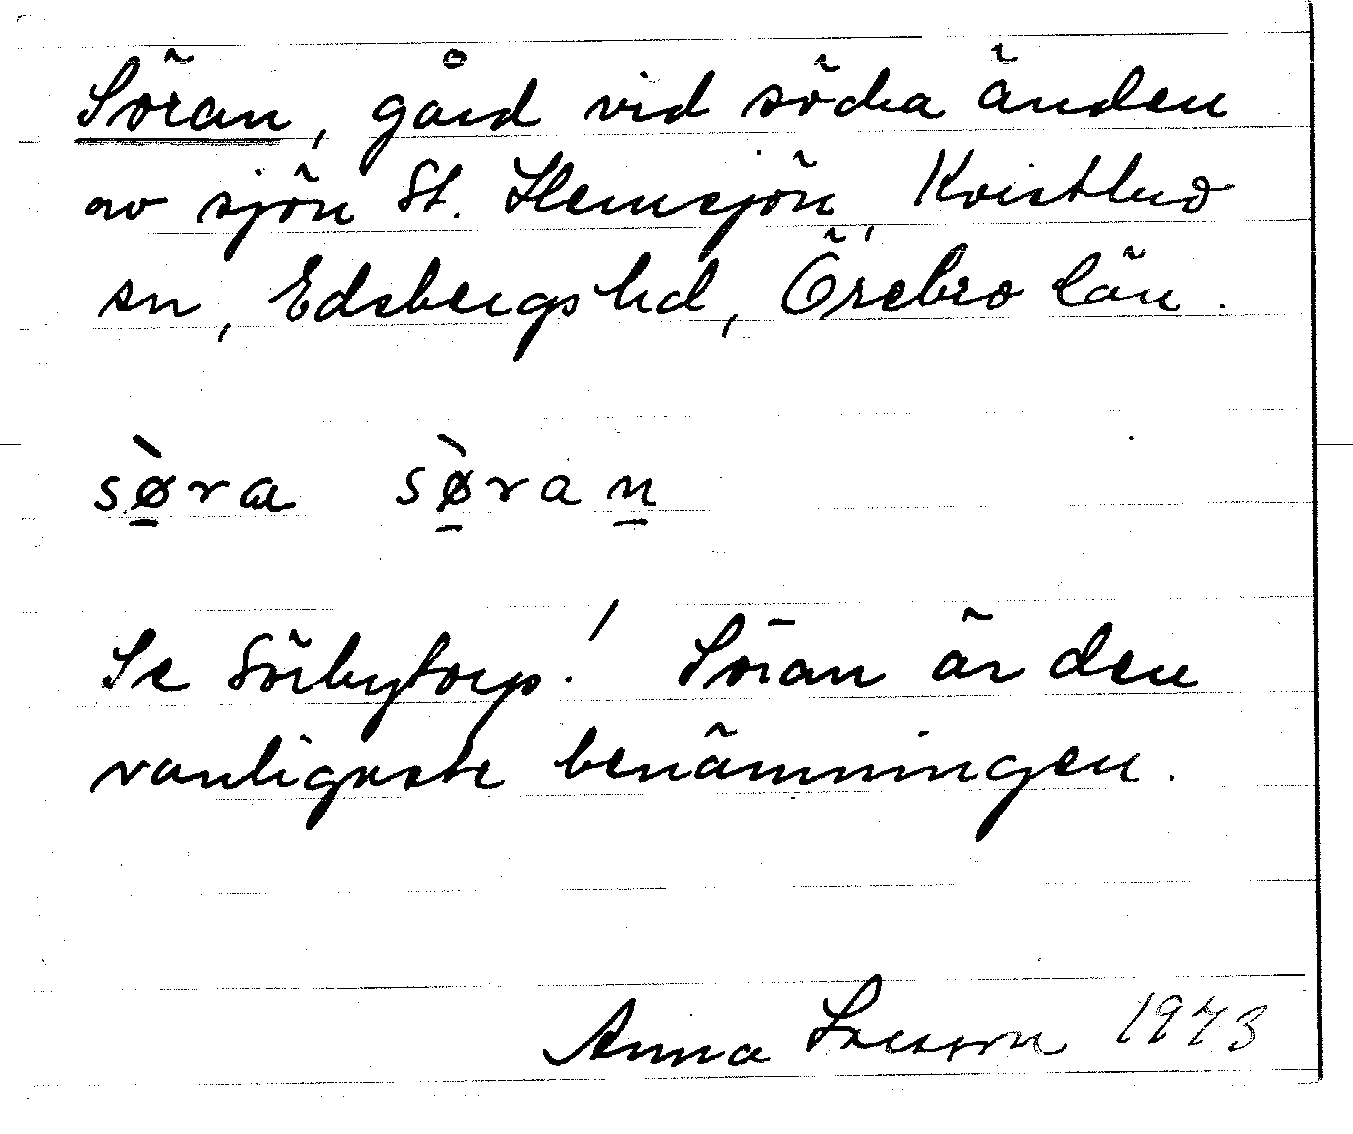 Söran, gård vid södra änden
av sjön St. Hemsjön, Kvistbro
sn, Edsbergs hd, Örebro län.
sø̀ra sø̀ran
Se Sörbytorp! Söran är den
vanligaste benämningen.
Anna Larsson 1973